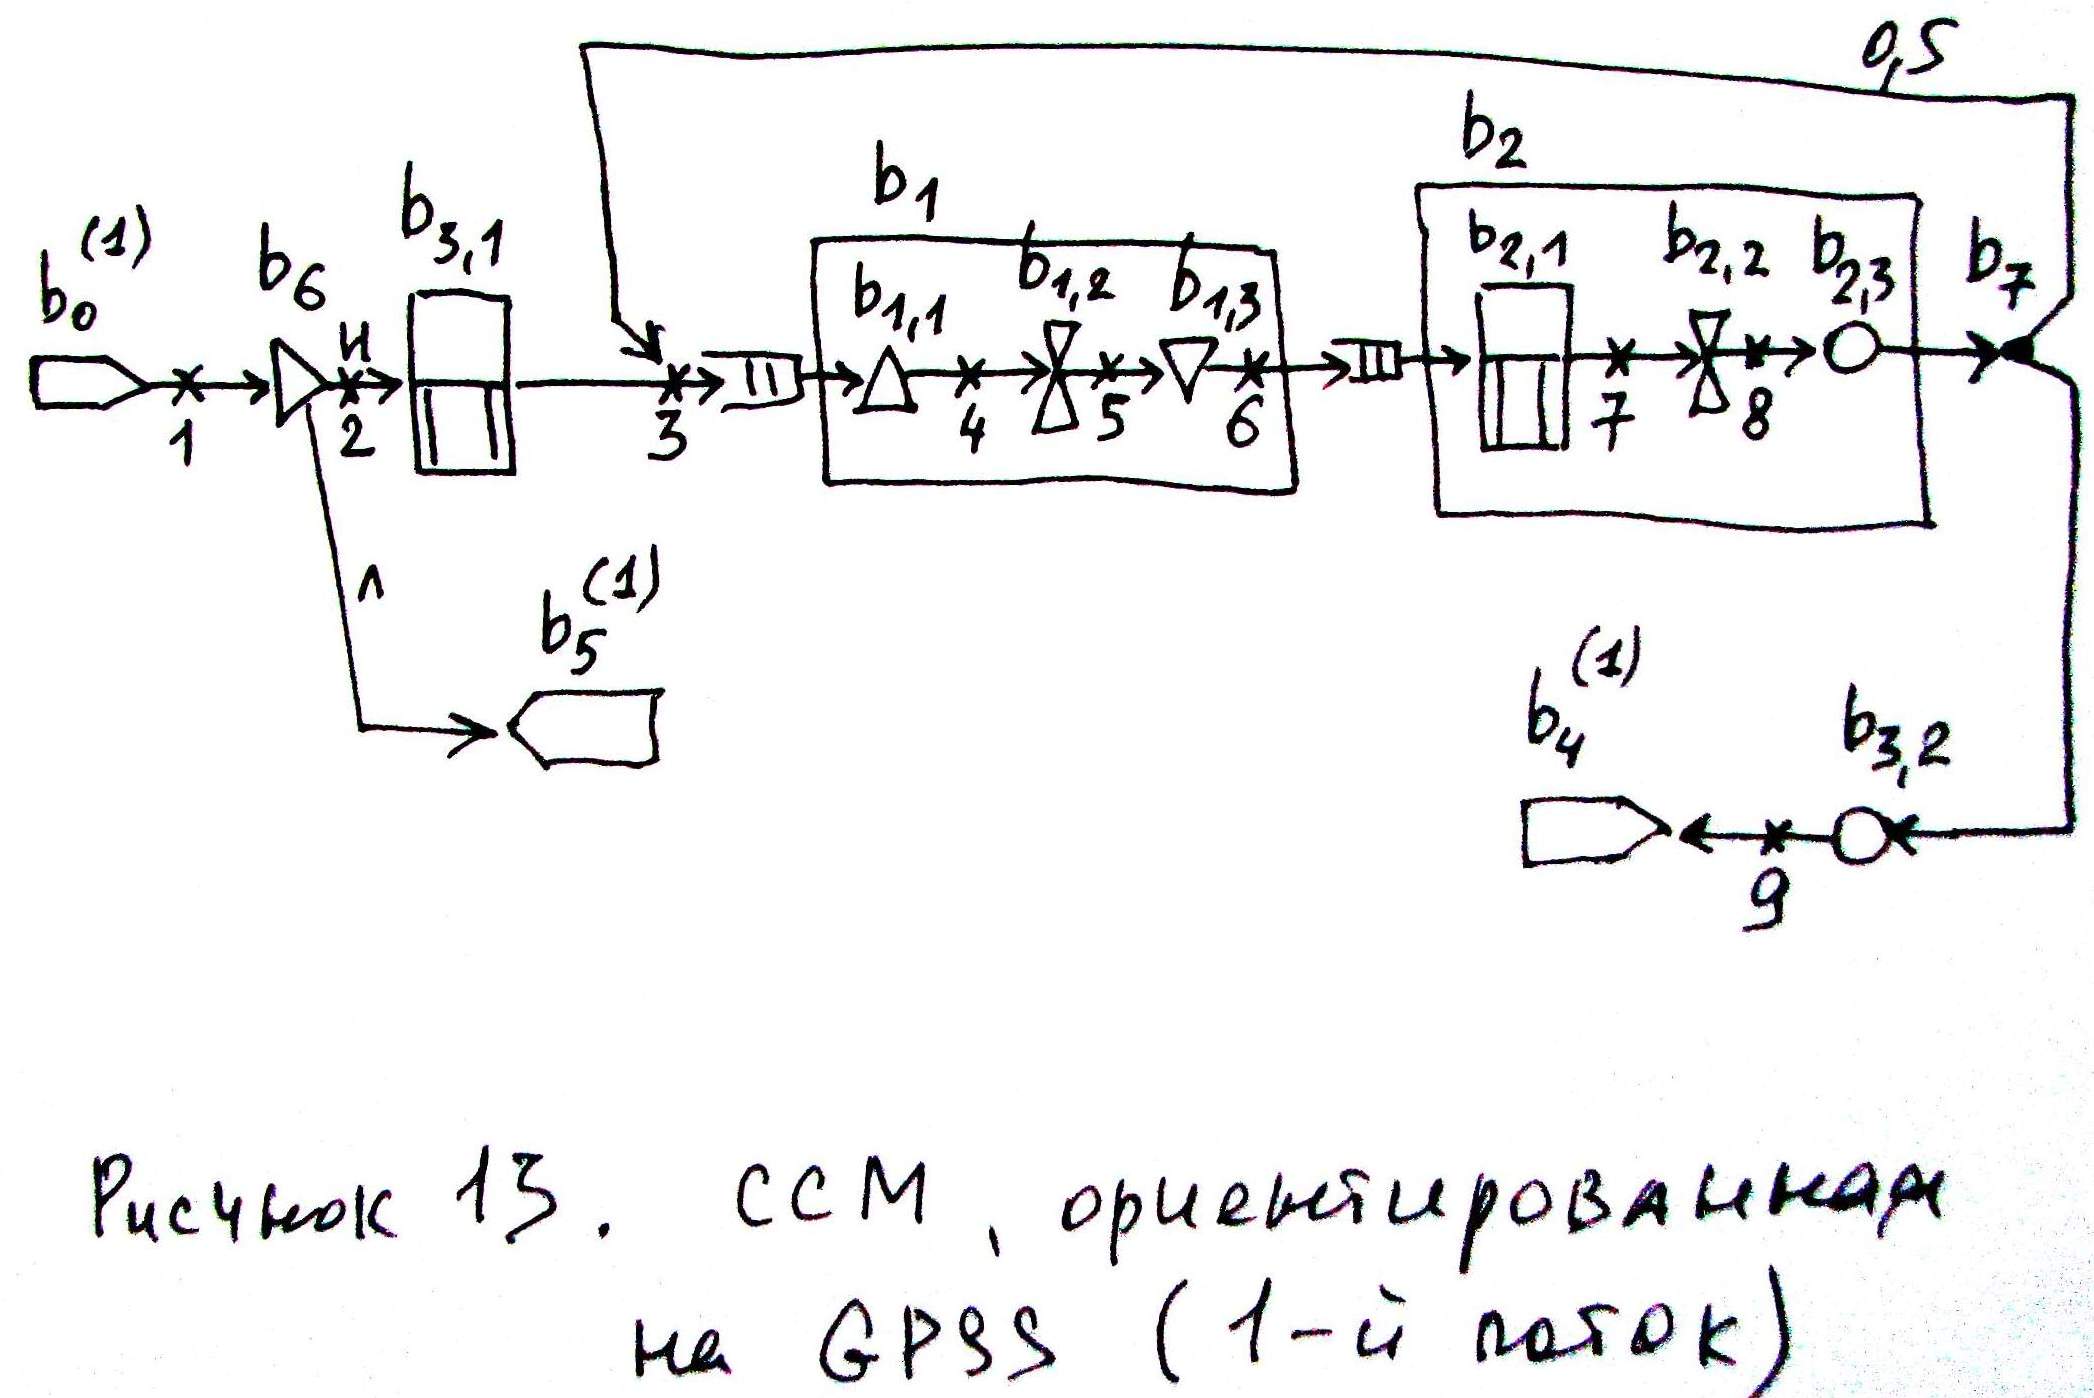 0,5
b₂
b₁
b₀⁽¹⁾ b₆ b₃,₁
b₁,₁ b₁,₂ b₁,₃ b₂,₁ b₂,₂ b₂,₃ b₇
И
1 2 3 4 5 6 7 8
Л
b₅⁽¹⁾
b₄⁽¹⁾ b₃,₂
9
Рисунок 13. ССМ, ориентированная
на GPSS (1-й поток)